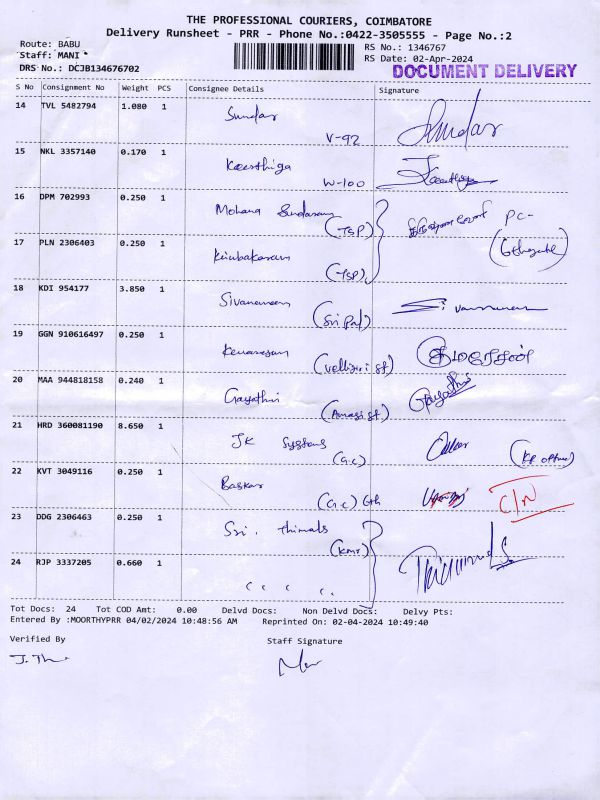 THE PROFESSIONAL COURIERS, COIMBATORE
Delivery Runsheet - PRR - Phone No.:0422-3505555 - Page No.:2
Route: BABU
Staff: MANI
DRS No.: DCJB134676702
RS No.: 1346767
RS Date: 02-Apr-2024
DOCUMENT DELIVERY
S No Consignment No Weight PCS Consignee Details Signature
14 TVL 5482794 1.080 1 Sundar V-92 Sundar
15 NKL 3357140 0.170 1 Keerthiga W-100
16 DPM 702993 0.250 1 Mohana Sundaram (TSP) PC-
17 PLN 2306403 0.250 1 Kirubakaran (TSP)
18 KDI 954177 3.850 1 (Sri Pal)
19 GGN 910616497 0.250 1 Kumaresan
20 MAA 944818158 0.240 1 Gayathri Gayathri
21 HRD 360081190 8.650 1 JK Systems (G.C)
22 KVT 3049116 0.250 1 Baskar (G.C) 6th C/N
23 DDG 2306463 0.250 1 Sri. Thimals (KMR)
24 RJP 3337205 0.660 1
Tot Docs: 24 Tot COD Amt: 0.00 Delvd Docs: Non Delvd Docs: Delvy Pts:
Entered By :MOORTHYPRR 04/02/2024 10:48:56 AM Reprinted On: 02-04-2024 10:49:40
Verified By Staff Signature